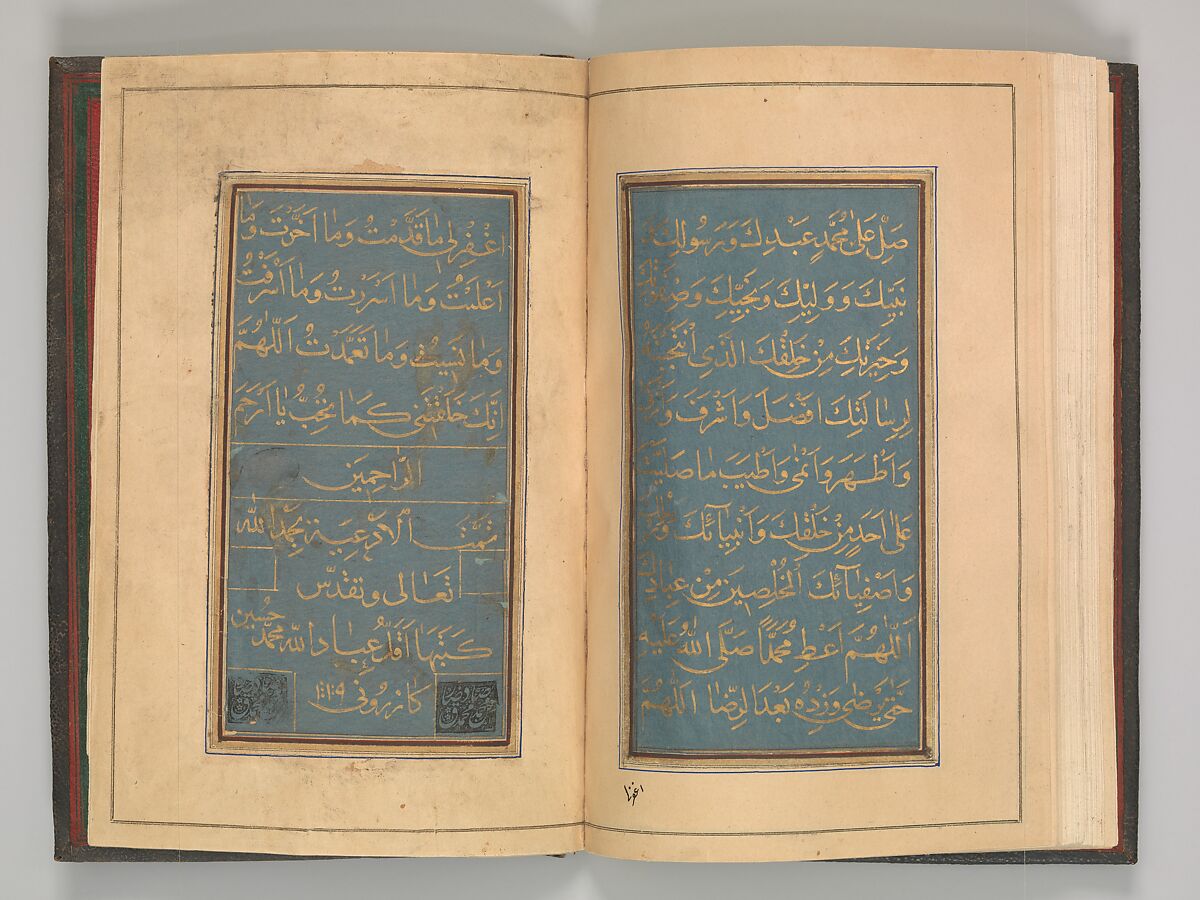 صَلِّ عَلىٰ مُحَمَّدٍ عَبْدِكَ وَرَسُولِكَ
نَبِيِّكَ وَوَلِيِّكَ وَنَجِيِّكَ
وَخِيَرَتِكَ مِنْ خَلْقِكَ الَّذِى انْتَجَبْتَهُ
لِرِسَالَتِكَ اَفْضَلَ وَاَشْرَفَ
وَاَطْهَرَ وَاَنْمىٰ وَاَطْيَبَ مٰا صَلَّيْتَ
عَلىٰ اَحَدٍ مِنْ خَلْقِكَ وَاَنْبِيٰآئِكَ
وَاَصْفِيٰآئِكَ الْمُخْلِصِينَ مِنْ عِبٰادِكَ
اَللّٰهُمَّ اَعْطِ مُحَمَّدًا صَلَّى اللهُ عَلَيْهِ
حَتّىٰ يَرْضىٰ وَزِدْهُ بَعْدَ الرِّضٰا اَللّٰهُمَّ
اغفرلى
اغْفِرْلىٖ مٰا قَدَّمْتُ وَمٰا اَخَّرْتُ وَمٰا
اَعْلَنْتُ وَمٰا اَسْرَرْتُ وَمٰا اَسْرَفْتُ
وَمٰا نَسِيتُ وَمٰا تَعَمَّدْتُ اَللّٰهُمَّ
اِنَّكَ خَلَقْتَنىٖ كَمٰا تُحِبُّ يٰا اَرْحَمَ
الرّٰاحِمِينَ
تمّت الادعية بحمد الله
تعالى وتقدّس
كتبها اقلّ عباد الله محمد حسين
كازرونى ١١١٩